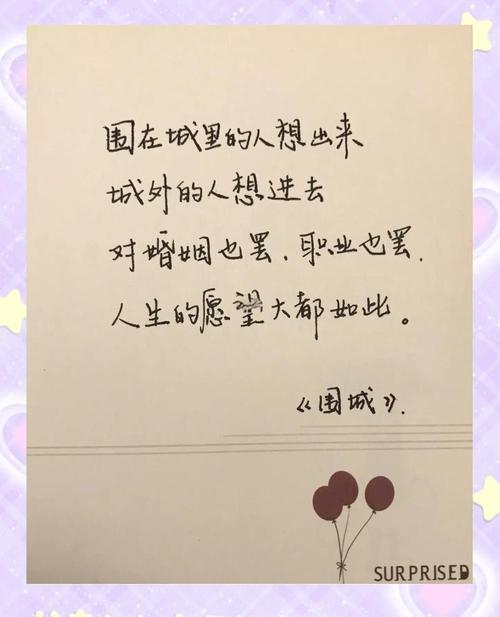 围在城里的人想出来
城外的人想进去
对婚姻也罢、职业也罢、
人生的愿望大都如此。
《围城》.
SURPRISED